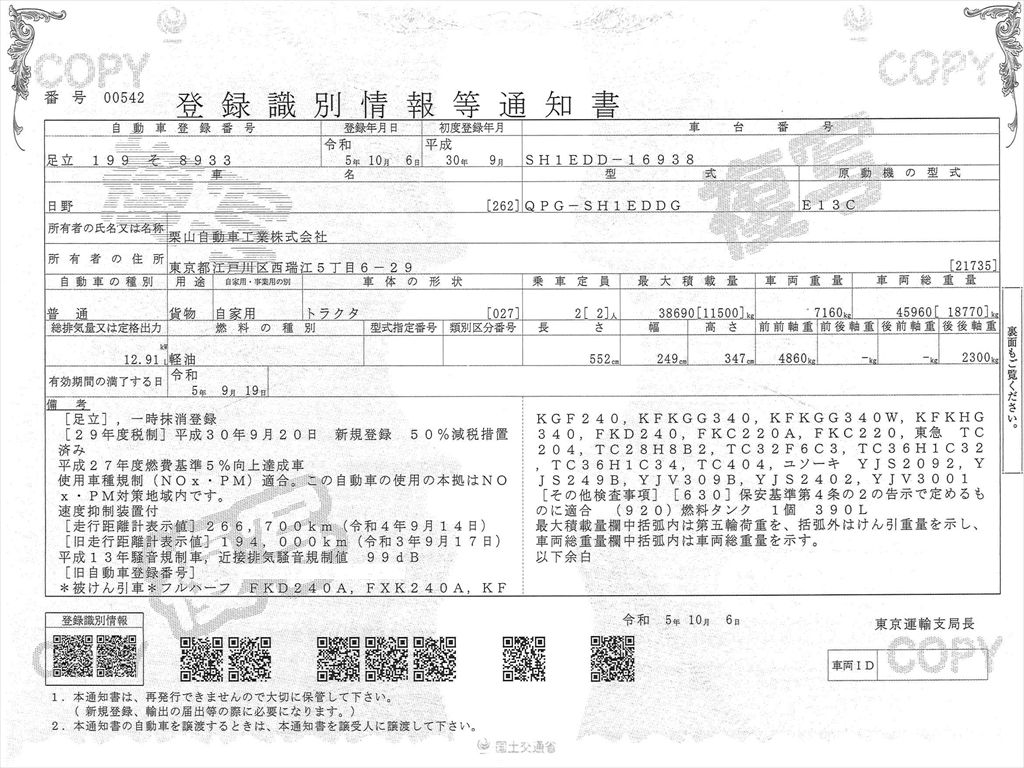 COPY
COPY
番号 00542
登録識別情報等通知書
自動車登録番号 登録年月日 初度登録年月 車台番号
足立 199 そ 8933 令和 5年 10月 6日 平成 30年 9月 SH1EDD-16938
車名 型式 原動機の型式
日野 [262] QPG-SH1EDDG E13C
所有者の氏名又は名称 栗山自動車工業株式会社
所有者の住所 東京都江戸川区西瑞江5丁目6-29 [21735]
自動車の種別 用途 自家用・事業用の別 車体の形状 乗車定員 最大積載量 車両重量 車両総重量
普通 貨物 自家用 トラクタ [027] 2[ 2]人 38690[11500]kg 7160kg 45960[ 18770]kg
総排気量又は定格出力 燃料の種別 型式指定番号 類別区分番号 長さ 幅 高さ 前前軸重 前後軸重 後前軸重 後後軸重
kW 12.91L 軽油 552cm 249cm 347cm 4860kg -kg -kg 2300kg
有効期間の満了する日 令和 5年 9月 19日
裏面もご覧ください。
備考
[足立], 一時抹消登録
[29年度税制] 平成30年9月20日 新規登録 50%減税措置
済み
平成27年度燃費基準5%向上達成車
使用車種規制(NOx・PM)適合。この自動車の使用の本拠はNO
x・PM対策地域内です。
速度抑制装置付
[走行距離計表示値] 266,700km(令和4年9月14日)
[旧走行距離計表示値] 194,000km(令和3年9月17日)
平成13年騒音規制車, 近接排気騒音規制値 99dB
[旧自動車登録番号]
*被けん引車*フルハーフ FKD240A, FXK240A, KF
KGF240, KFKGG340, KFKGG340W, KFKHG
340, FKD240, FKC220A, FKC220, 東急 TC
204, TC28H8B2, TC32F6C3, TC36H1C32
, TC36H1C34, TC404, ユソーキ YJS2092, YJ
S249B, YJV309B, YJS2402, YJV3001
[その他検査事項] [630] 保安基準第4条の2の告示で定めるも
のに適合 (920) 燃料タンク 1個 390L
最大積載量欄中括弧内は第五輪荷重を、括弧外はけん引重量を示し、
車両総重量欄中括弧内は車両総重量を示す。
以下余白
複写
登録識別情報
令和 5年 10月 6日
東京運輸支局長
車両ID
COPY
1. 本通知書は、再発行できませんので大切に保管して下さい。
(新規登録、輸出の届出等の際に必要になります。)
2. 本通知書の自動車を譲渡するときは、本通知書を譲受人に譲渡して下さい。
国土交通省